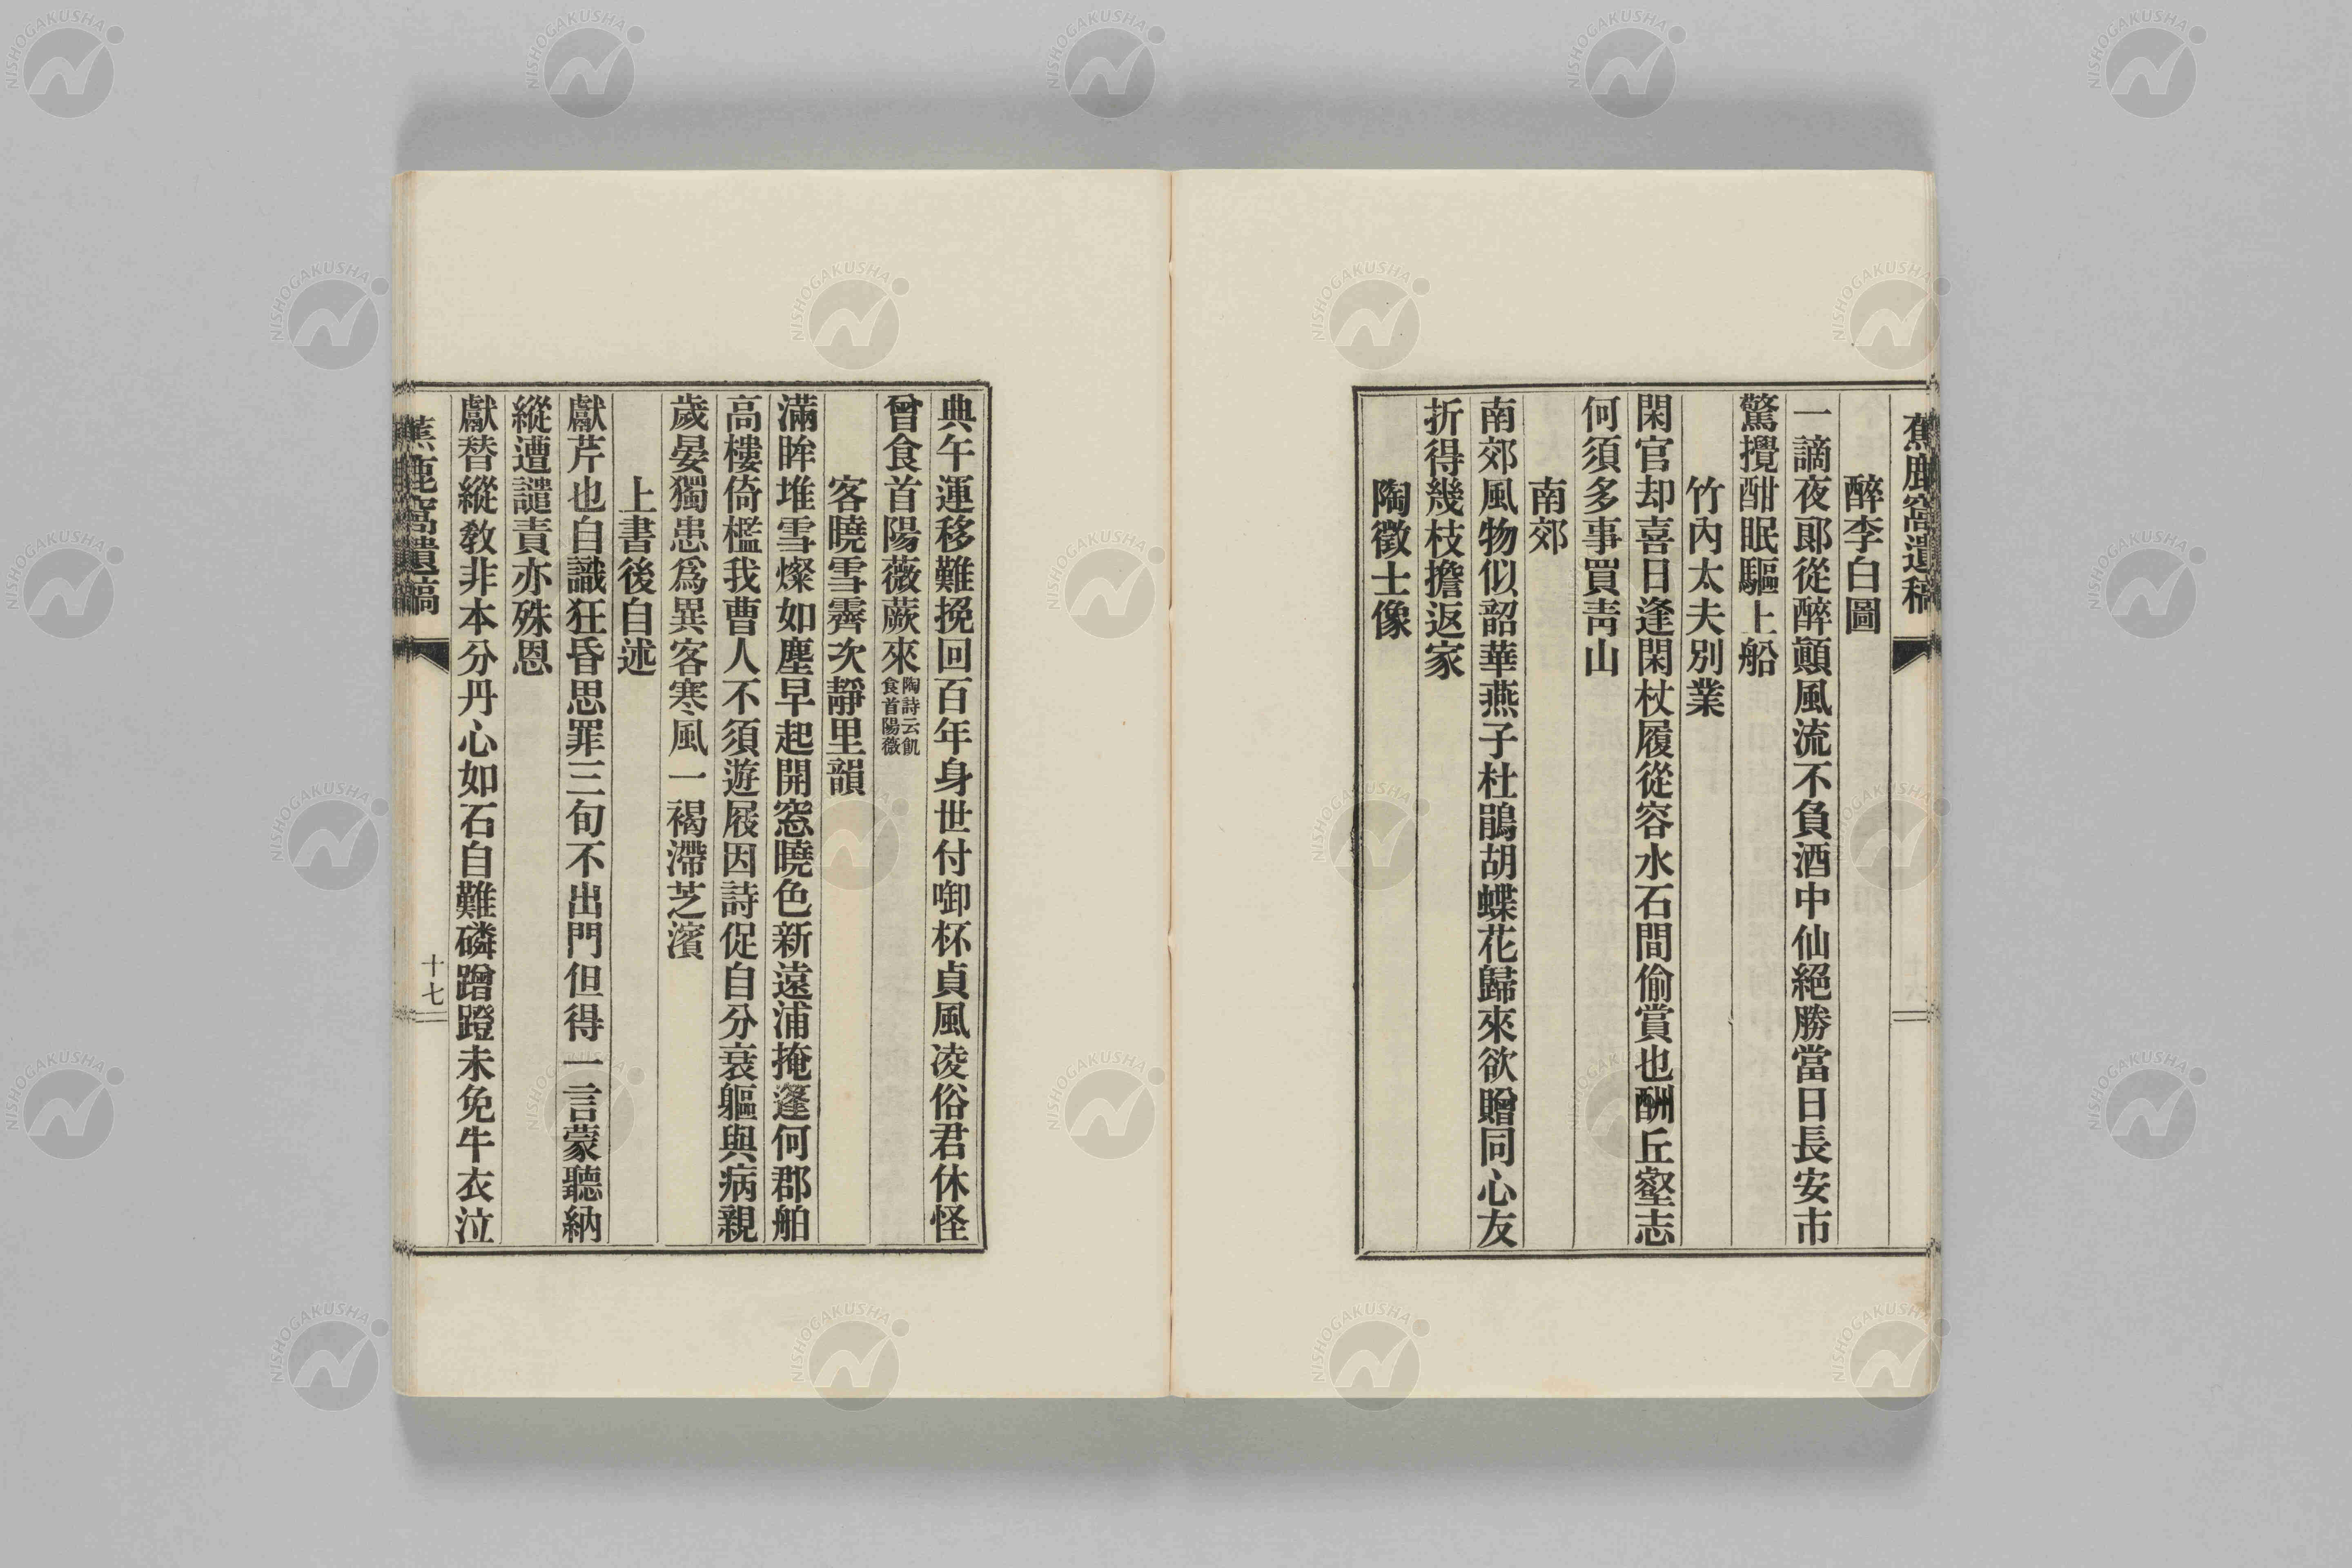 蕉鹿窩遺稿
醉李白圖
一謫夜郞從醉顚風流不負酒中仙絕勝當日長安市
驚攪酣眠驅上船
竹內太夫別業
閑官却喜日逢閑杖履從容水石間偷賞也酬丘壑志
何須多事買靑山
南郊
南郊風物似韶華燕子杜鵑胡蝶花歸來欲贈同心友
折得幾枝擔返家
陶徵士像
典午運移難挽回百年身世付啣杯貞風凌俗君休怪
曾食首陽薇蕨來陶詩云飢食首陽薇
客曉雪霽次靜里韻
滿眸堆雪燦如塵早起開窓曉色新遠浦掩篷何郡舶
高樓倚檻我曹人不須遊屐因詩促自分衰軀與病親
歲晏獨患爲異客寒風一褐滯芝濱
上書後自述
獻芹也自識狂昏思罪三旬不出門但得一言蒙聽納
縱遭譴責亦殊恩
獻替縱敎非本分丹心如石自難磷蹭蹬未免牛衣泣
蕉鹿窩遺稿
十七
NISHOGAKUSHA